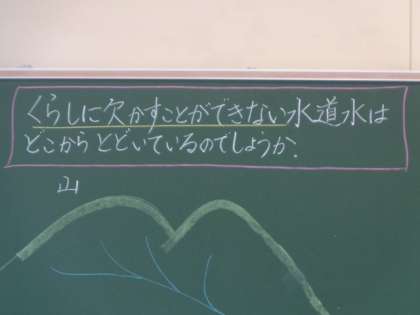 くらしに欠かすことができない水道水は
どこからとどいているのでしょうか?
山